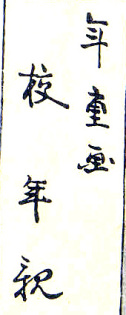 年重画
校年親